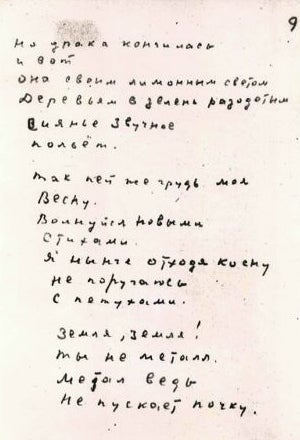 9
Но драка кончилась
и вот
она своим лимонным светом
Деревьям в зелень разодетым
Сиянье звучное
польёт.
Так пей же грудь моя
Весну.
Волнуйся новыми
Стихами.
Я нынче отходя ко сну
не поругаюсь
с петухами.
Земля, земля!
Ты не металл.
Метал ведь
Не пускает почку.